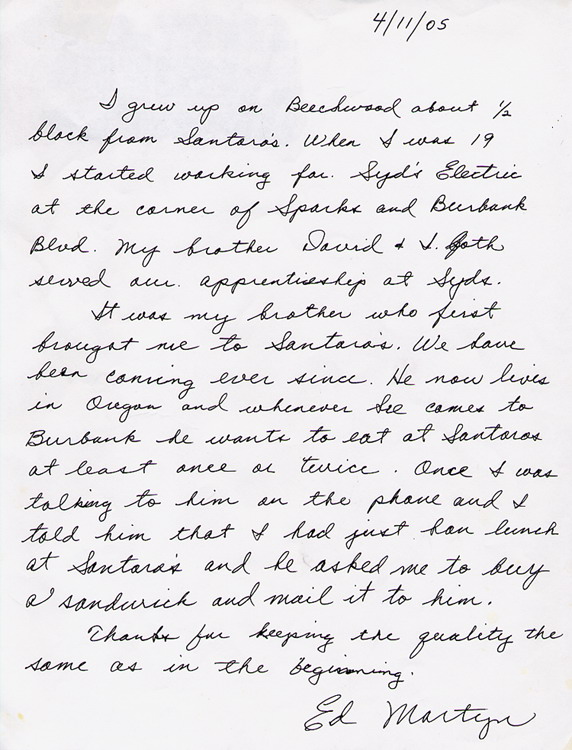 4/11/05
I grew up on Beechwood about 1/2
block from Santoro's. When I was 19
I started working for Syd's Electric
at the corner of Sparks and Burbank
Blvd. My brother David & I both
served our apprentieship at Syds.
It was my brother who first
brought me to Santoro's. We have
been coming ever since. He now lives
in Oregon and whenever he comes to
Burbank he wants to eat at Santoros
at least once or twice. Once I was
talking to him on the phone and I
told him that I had just had lunch
at Santoro's and he asked me to buy
a sandwich and mail it to him.
Thanks for keeping the quality the
same as in the beginning.
Ed Martyn